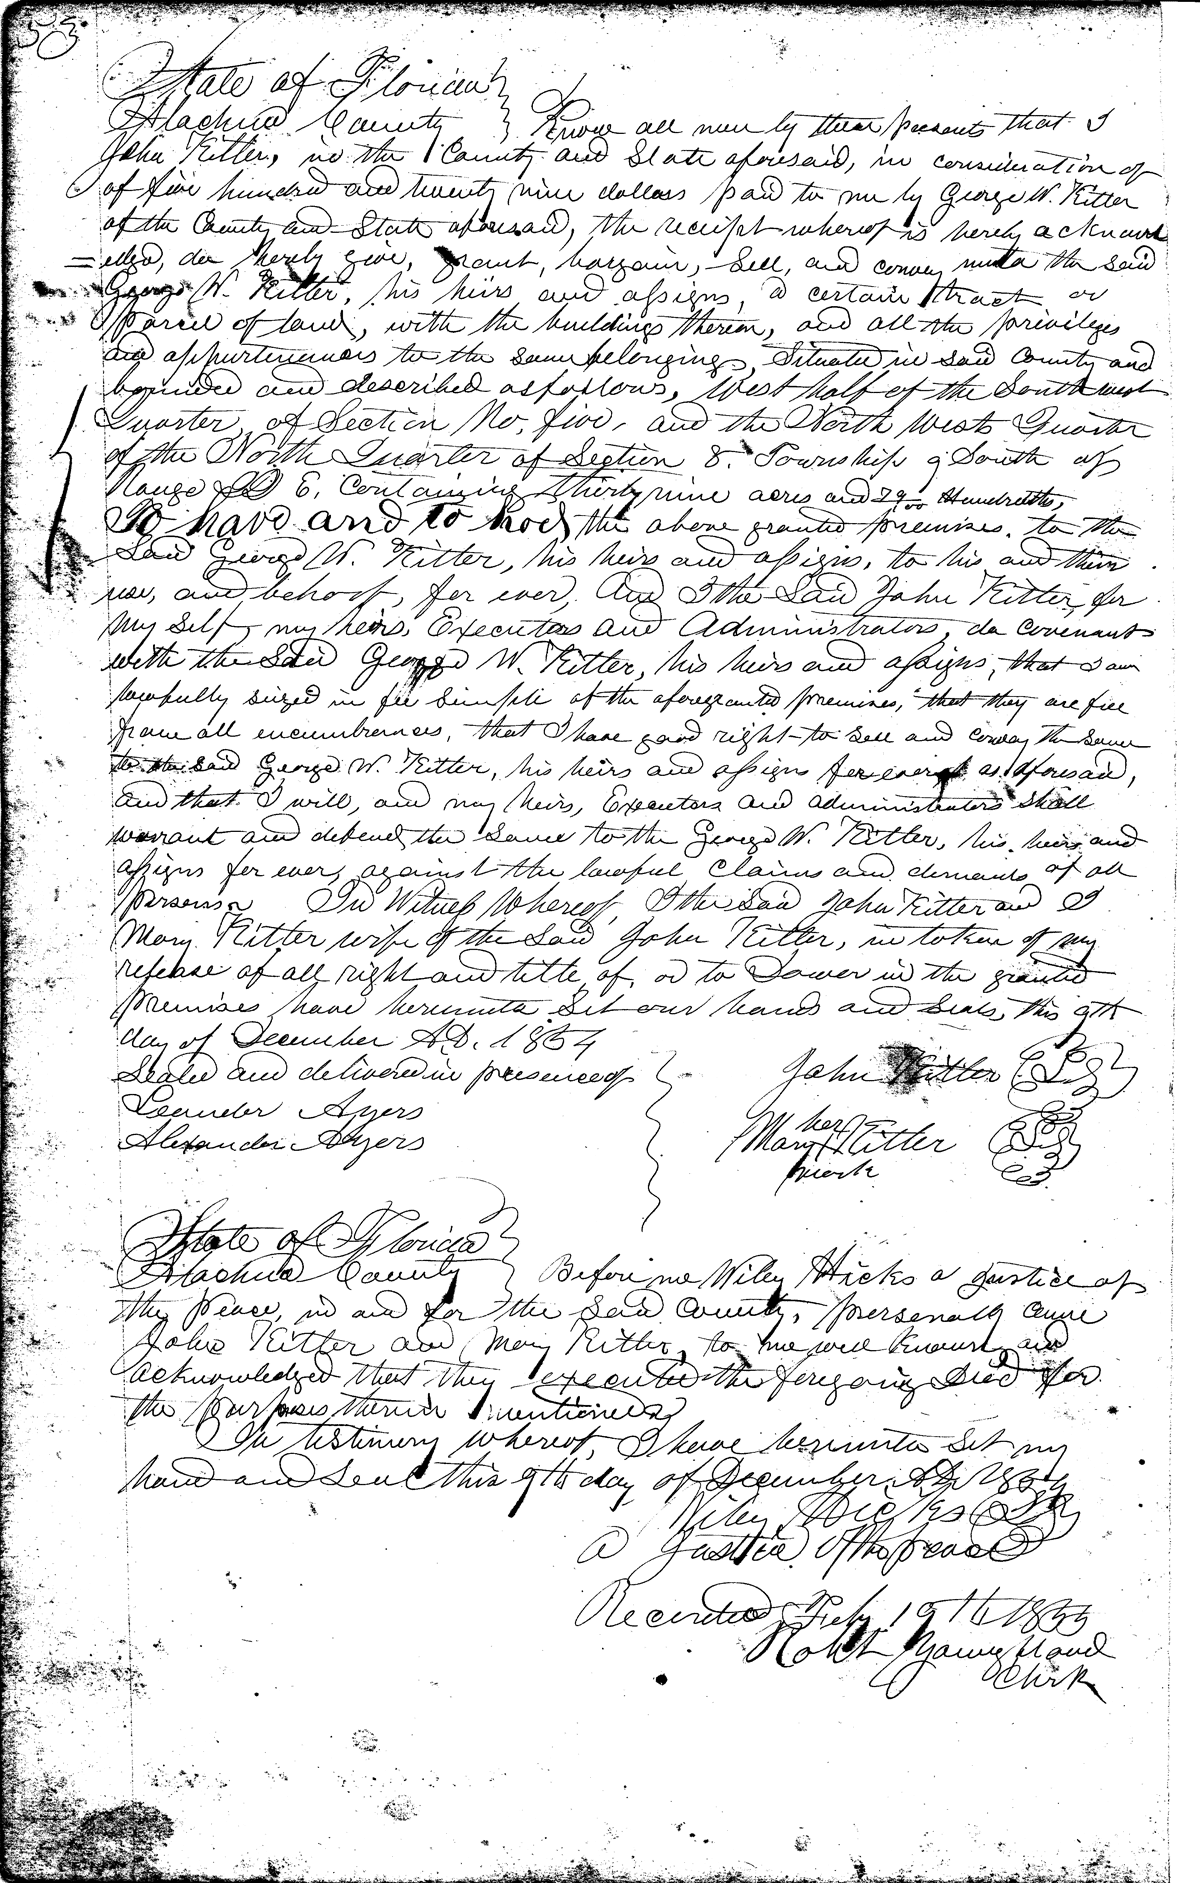 State of Florida
Alachua County } Know all men by these presents that I
John Fitter, in the County and State aforesaid, in consideration of
of five hundred and twenty nine dollars paid to me by George W. Fitter
of the County and State aforesaid, the receipt whereof is hereby acknowl
=edge, do hereby give, grant, bargain, Sell, and convey unto the said
George W. Fitter, his heirs and assigns, a certain tract or
parcel of land, with the buildings thereon, and all the privileges
and appurtenances to the same belonging, Situated in said County and
bounded and described as follows, West half of the South west
Quarter of Section No, five, and the North West Quarter
of the North Quarter of Section 8. Township 9 South of
Range 6, Containing thirty nine acres and Hundredths,
To have and to hold the above granted premises, to the
Said George W. Fitter, his heirs and assigns, to his and their
use, and behoof, for ever, And I the Said John Fitter, for
my Self, my heirs, Executors and Administrators, do covenant
with the Said George W. Fitter, his heirs and assigns, that I am
lawfully seized in fee Simple of the aforegranted premises, that they are free
from all encumbrances, that I have good right to Sell and convey the Same
to the Said George W. Fitter, his heirs and assigns for ever as aforesaid,
and that I will, and my heirs, Executors and administrators shall
warrant and defend the Same to the George W. Fitter, his heirs and
assigns for ever, against the lawful Claims and demands of all
persons. In Witness Whereof, I the Said John Fitter and I
Mary Fitter wife of the Said John Fitter, in token of my
release of all right and title of, or to Dower in the granted
premises have hereunto Set our hands and Seals, this 9th
day of December A.D. 1854
Sealed and delivered in presence of } John Fitter
Leander Ayers
her
Alexander Ayers Mary Fitter
mark
State of Florida
Alachua County } Before me Wiley Hicks a Justice of
the Peace, in and for the Said County, personally came
John Fitter and Mary Fitter, to me well known and
acknowledged that they executed the foregoing Deed for
the purposes therein mentioned
In testimony whereof, I have hereunto Set my
hand and Seal this 9th day of December AD 1854
Wiley Hicks
A Justice Of the peace
Recorded July 19th 1855
Robt Youngblood
Clerk